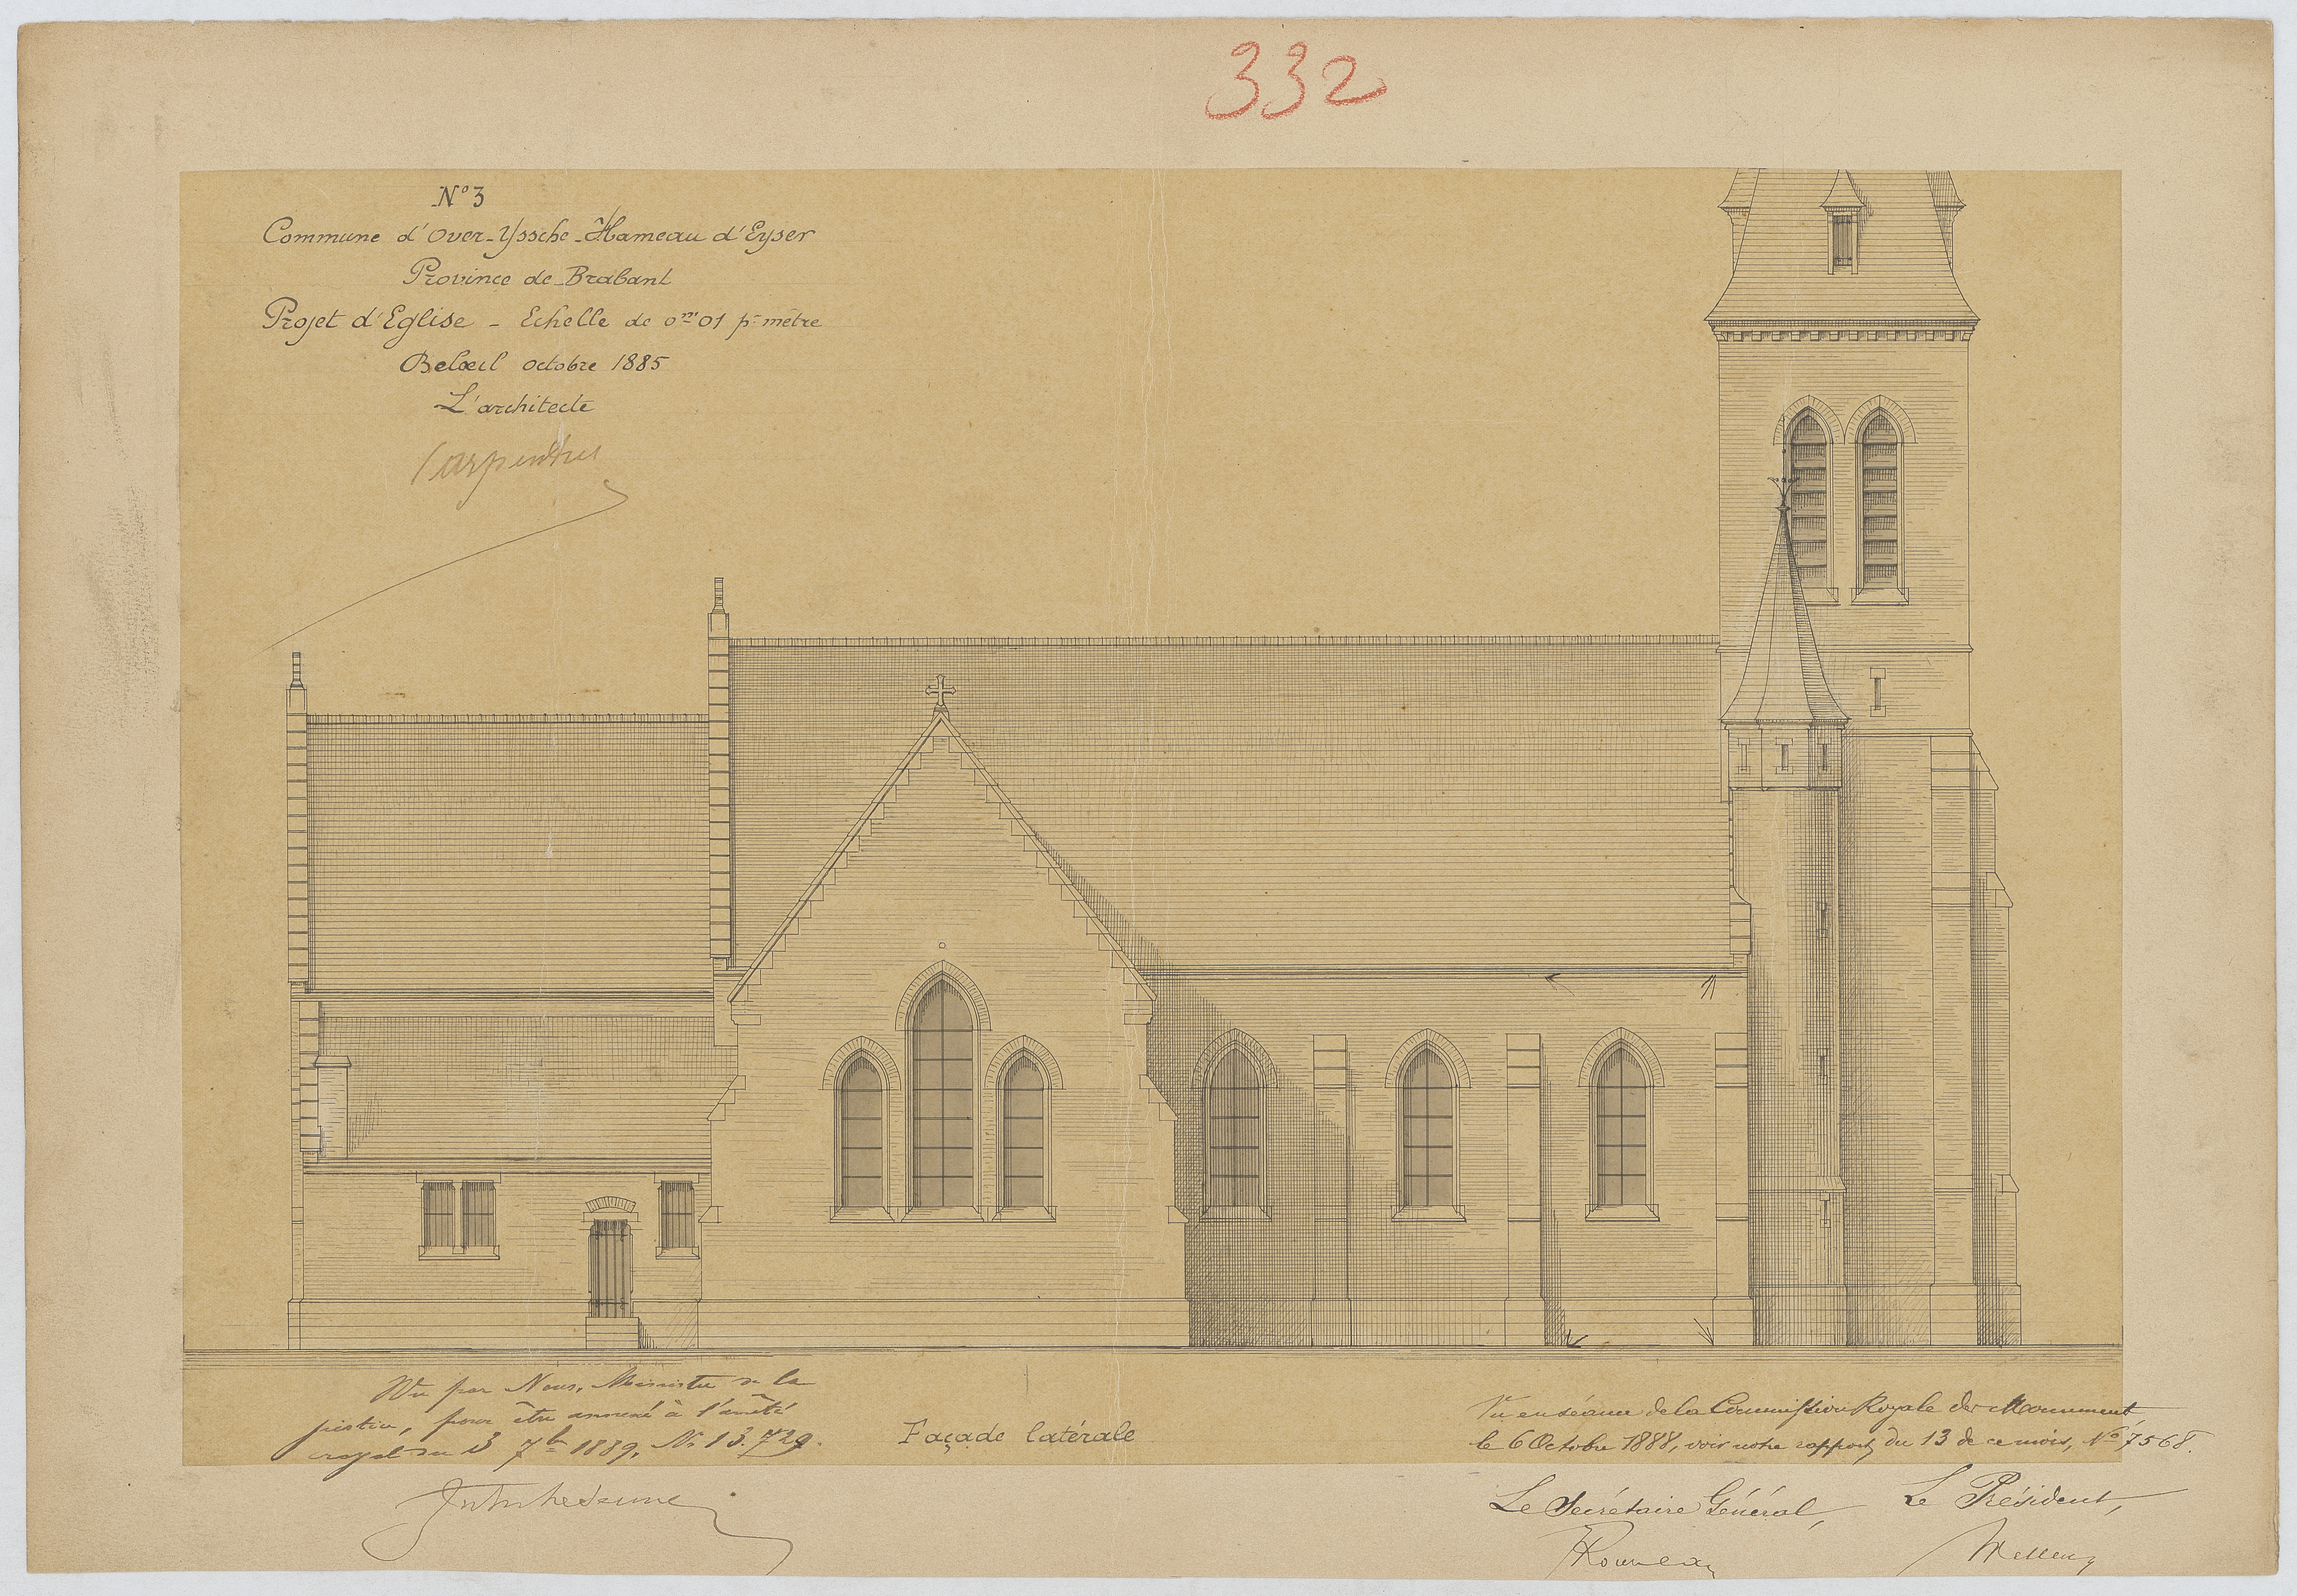 332
N° 3
Commune d'Over-Yssche-Hameau d'Eyser
Province de Brabant
Projet d'Eglise - Echelle de 0m01 pr mètre
Belœil octobre 1885
L'architecte
Carpentier
Vu par Nous, Ministre de la
justice, pour être annexé à l'arrêté
royal du 3 7bre 1889, No 13.729.
Façade latérale
Vu en séance de la Commission Royale des Monuments,
le 6 Octobre 1888, voir notre rapport du 13 de ce mois, No 7568.
Le Secrétaire Général,
Le Président,
Rousseau
Wellens